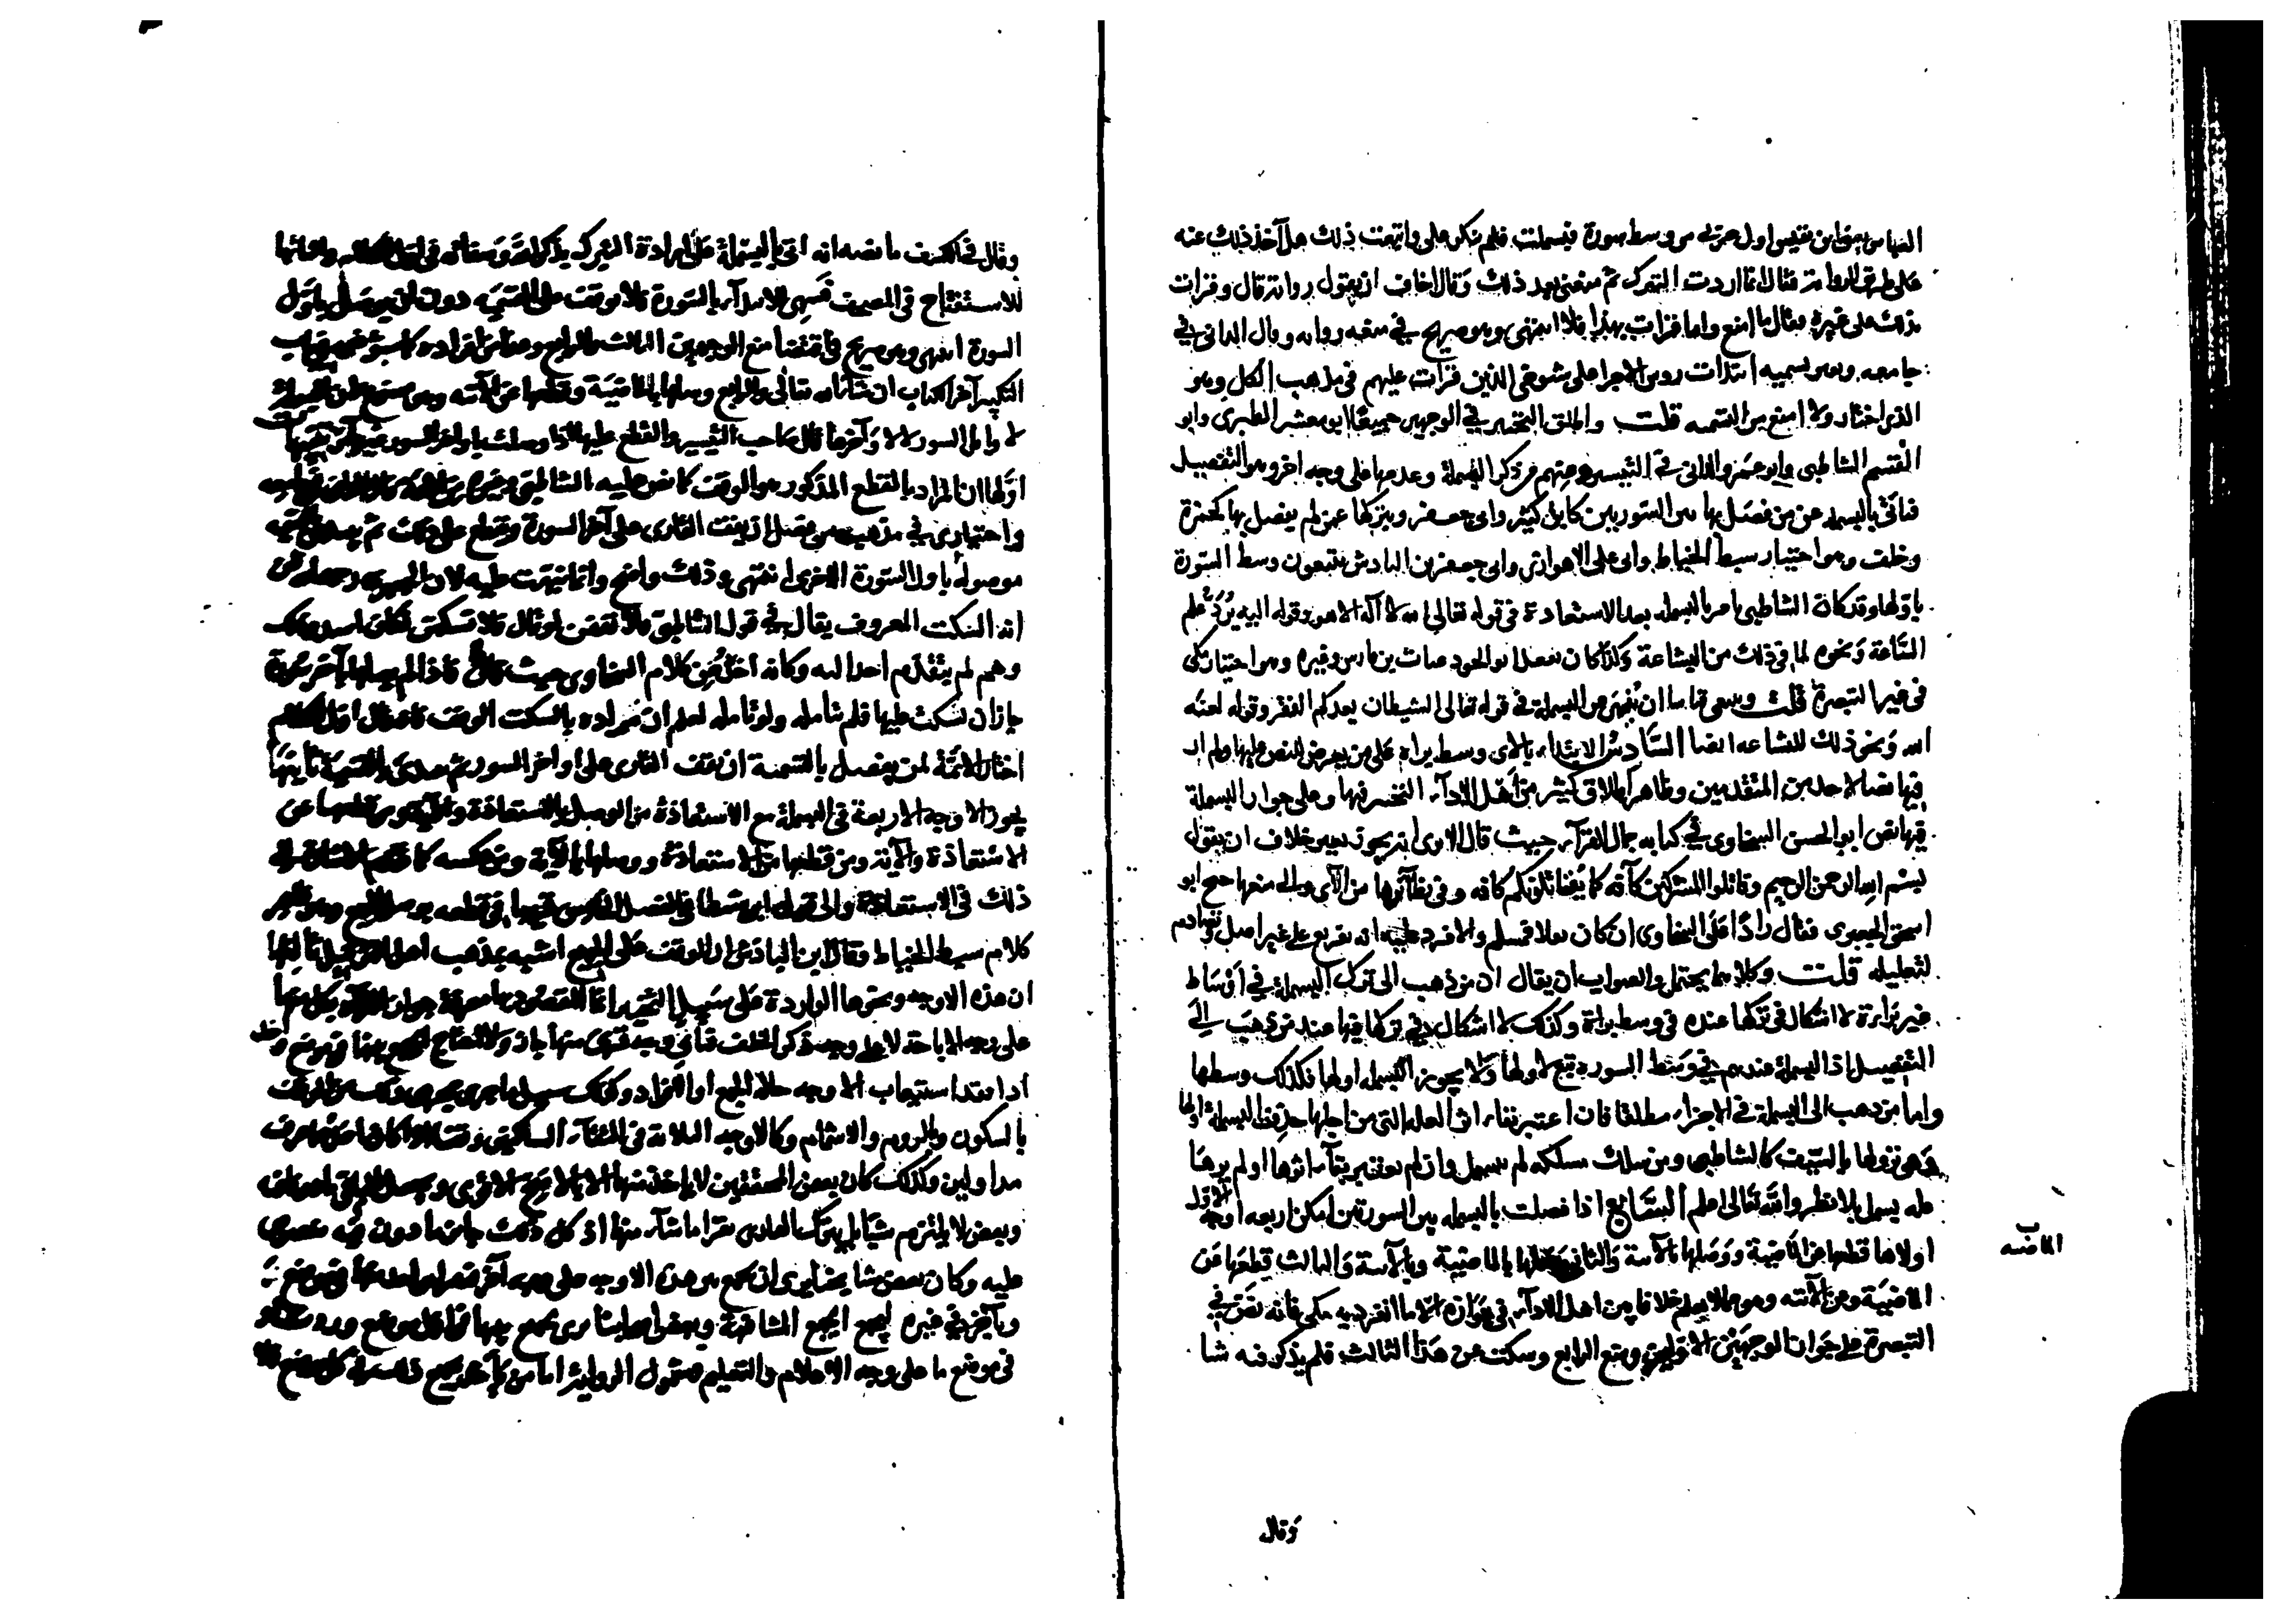 العباس يعني ابن نفيس اول حزبي من وسط سورة فبسملت فلم ينكر علي واتبعت ذلك هل آخذ ذلك عنه
على طريق الرواية فقال انما اردت التبرك ثم منعني بعد ذلك وقال اخاف ان يقول رواية قال وقرات
بذلك على غيره فقال ما امنع واما قرات بهذا فلا انتهى وهو صريح في منعه رواية وقال الداني في
جامعه وبغير تسميه ابتدات روس الاجزا على شيوخي الذين قرات عليهم في مذهب الكل وهو
الذي اختار ولا امنع من التسميه قلت واطلق التخيير في الوجهين جميعا ابو معشر الطبري وابو
القسم الشاطبي وابو عمرو الداني في التيسير ومنهم من ذكر البسملة وعدمها على وجه اخر وهو التفصيل
فياتى بالبسملة عن من فصل بها بين السورتين كابن كثير وابي جعفر ويتركها عمن لم يفصل بها كحمزة
وخلف وهو اختيار سبط الخياط وابي علي الاهوازي وابي جعفر بن الباذش يتبعون وسط السورة
باولها وقد كان الشاطبي يامر بالبسملة بعد الاستعاذة في قوله تعالى الله لا اله الا هو وقوله اليه يرد علم
الساعة ونحوه لما في ذلك من البشاعة وكذا كان يفعل ابو الجود غياث بن فارس وغيره وهو اختيار مكي
في غير التبصرة قلت وينبغي قياسا ان ينهى عن البسملة في قوله تعالى الشيطان يعدكم الفقر وقوله لعنه
الله ونحو ذلك للبشاعة ايضا السادس الابتداء بالاي وسط براءة قل من تعرض للنص عليها ولم ار
فيها نصا لاحد من المتقدمين وظاهر اطلاق كثير من اهل الاداء التخيير فيها وعلى جواز البسملة
فيها نص ابو الحسن السخاوي في كتابه جمال القراء حيث قال الا ترى انه يجوز بغير خلاف ان يقول
بسم الله الرحمن الرحيم وقاتلوا المشركين كآفة كما يقاتلونكم كافة وفي نظآئرها من الآي والى منعها جنح ابو
اسحق الجعبري فقال رادا على السخاوي ان كان نقلا فمسلم والا فرد عليه انه تفريع على غير اصل وتصادم
لتعليله قلت وكلاهما يحتمل والصواب ان يقال ان من ذهب الى ترك البسملة في اوساط
غير براءة لا اشكال في تركها عنده في وسط براءة وكذلك لا اشكال في تركها فيها عند من ذهب الى
التفصيل اذ البسملة عندهم في وسط السورة تبع لاولها ولا يجوز البسملة اولها فكذلك وسطها
واما من ذهب الى البسملة في الاجزاء مطلقا فان اعتبر بقاء اثر العلة التي من اجلها حذفت البسملة اولها
وهي نزولها بالسيف كالشاطبي ومن سلك مسلكه لم يبسمل وان لم يعتبر بقاء اثرها او لم يرها
علة بسمل بلا نظر والله تعالى اعلم السابع اذا فصلت بالبسملة بين السورتين امكن اربعة اوجه الاول
اولاها قطعها عن الماضية ووصلها بالآتية والثاني وصلها بالماضية وبالآتية والثالث قطعها عن
الماضية وعن الآتية وهو مما لا يعلم خلافا بين اهل الاداء في جوازه الا ما انفرد به مكي فانه نص في
التبصرة على جواز الوجهين الاولين ومنع الرابع وسكت عن هذا الثالث فلم يذكر فيه شيا
الماضية
وقال
وقال في الكشف ما نصه انه اتى بالبسملة على ارادة التبرك بذكر الله وصفاته في اول الكلام واثباتها
للاستفتاح في المصحف فهي للابتداء بالسورة فلا يوقف على التسمية دون ان يوصل باول
السورة انتهى وهو صريح في اقتضا منع الوجهين الثالث والرابع
التكبير آخر الكتاب ان شاء الله تعالى والرابع وصلها بالماضية وقطعها عن الآتية وهو ممنوع لان البسملة
لاوايل السور لا لاواخرها قال صاحب التيسير والقطع عليها اذا وصلت باواخر السور غير جائز
اولها ان المراد بالقطع المذكور هو الوقف كما نص عليه الشاطبي وغيره
واختياري في مذهب من يفصل ان يقف القارى على آخر السورة ويقطع على ذلك ثم يبتدى بالتسمية
موصولة باول السورة الاخرى انتهى وذلك واضح وانما نبهت عليه لان الجعبري رحمه الله ظن
انه السكت المعروف فقال في قول الشاطبي فلا تقفن لو قال فلا تسكتن لكان اسد وذلك
وهم لم يتقدمه احد اليه وكانه اخذه من كلام السخاوي حيث قال فاذا لم يصلها بآخر سورة
جاز ان تسكت عليها فلم يتامله ولو تامله لعلم ان مراده بالسكت الوقف فانه قال اول الكلام
اختار الائمة لمن يفصل بالتسمية ان يقف القارى على اواخر السور ثم يبتدى بالتسمية ثانيها
يجوز الاوجه الاربعة في البسملة مع الاستعاذة من الوصل بالاستعاذة والآية ومن قطعها عن
الاستعاذة والآية ومن قطعها عن الاستعاذة ووصلها بالآية ومن عكسه كما تقدم الاشارة الى
ذلك في الاستعاذة والى قول ابن شيطا في الفصل
كلام سبط الخياط وقال ابن الباذش ان الوقف على الجميع اشبه بمذهب اهل الترتيل ثالثها
ان هذه الاوجه ونحوها الواردة على سبيل التخيير انما المقصود بها معرفة جواز القراءة بكل منها
على وجه الاباحة لا على وجه ذكر الخلف فباي وجه قرئ منها جاز ولا احتياج الى الجمع بينها في موضع واحد
اذا قصد استيعاب الاوجه حالة الجمع او الافراد وكذلك سبيل ما جرى مجرى ذلك من الوقف
بالسكون وبالروم والاشمام وكالاوجه الثلاثة في التقاء الساكنين وقفا اذا كان احدهما حرف
مد او لين وكذلك كان بعض المحققين لا ياخذ منها الا بالاصح الاقوى ويجعل الباقي ماذونا فيه
وبعض لا يلتزم شيا بل يترك القارى يقرا ما شاء منها اذ كل ذلك جائز ماذون فيه منصوص
عليه وكان بعض مشايخنا يرى ان يجمع بين هذه الاوجه على وجه آخر فيقرا بواحد منها في موضع
وبآخر في غيره ليجمع الجميع المشافهة وبعض اصحابنا يرى يجمع بينها في اول موضع وردت
في موضع ما على وجه الاعلام والتعليم وشمول الرواية اما من ياخذ بجميع ذلك في كل موضع فلا